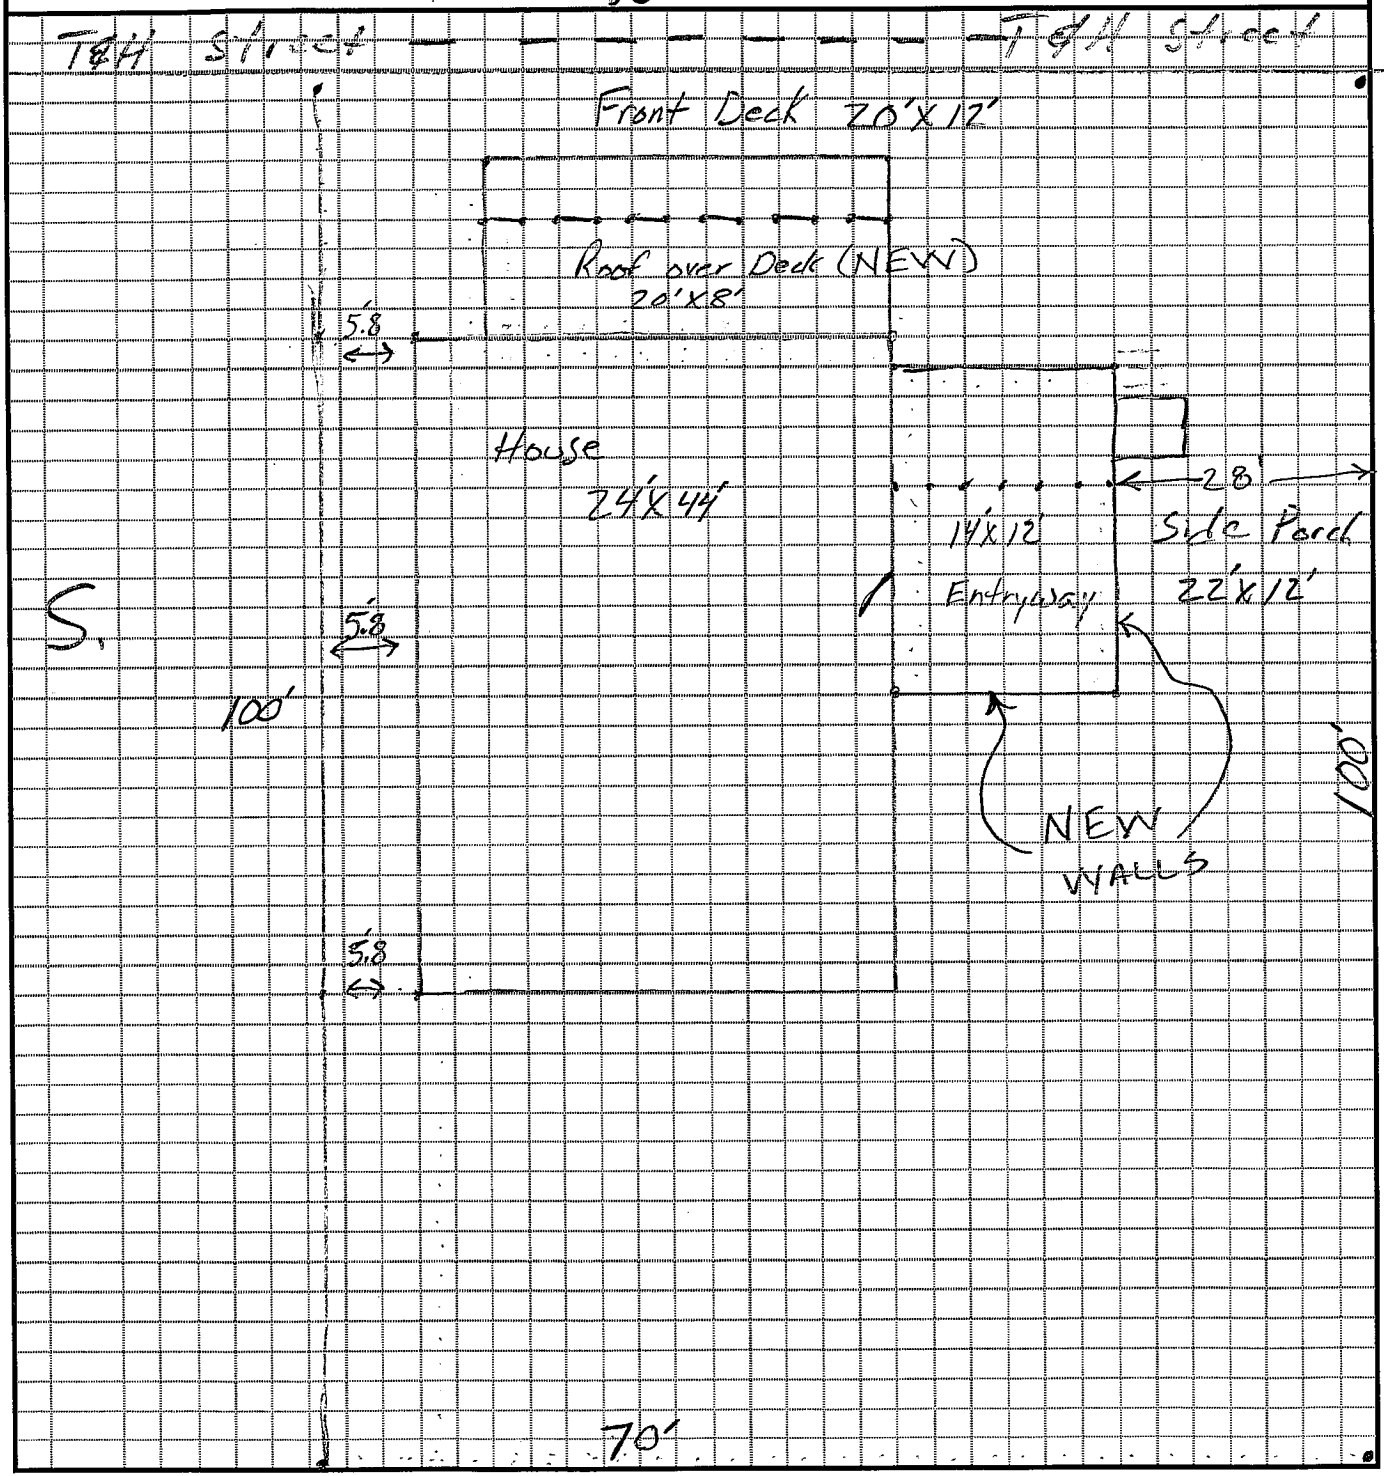 T&H Street
T&H Street
Front Deck 20'X12'
Roof over Deck (NEW)
20'X8'
5.8'
House
24'X44'
28'
14'X12'
Entryway
Side Porch
22'X12'
S.
5.8'
100'
100'
NEW
WALLS
5.8'
70'